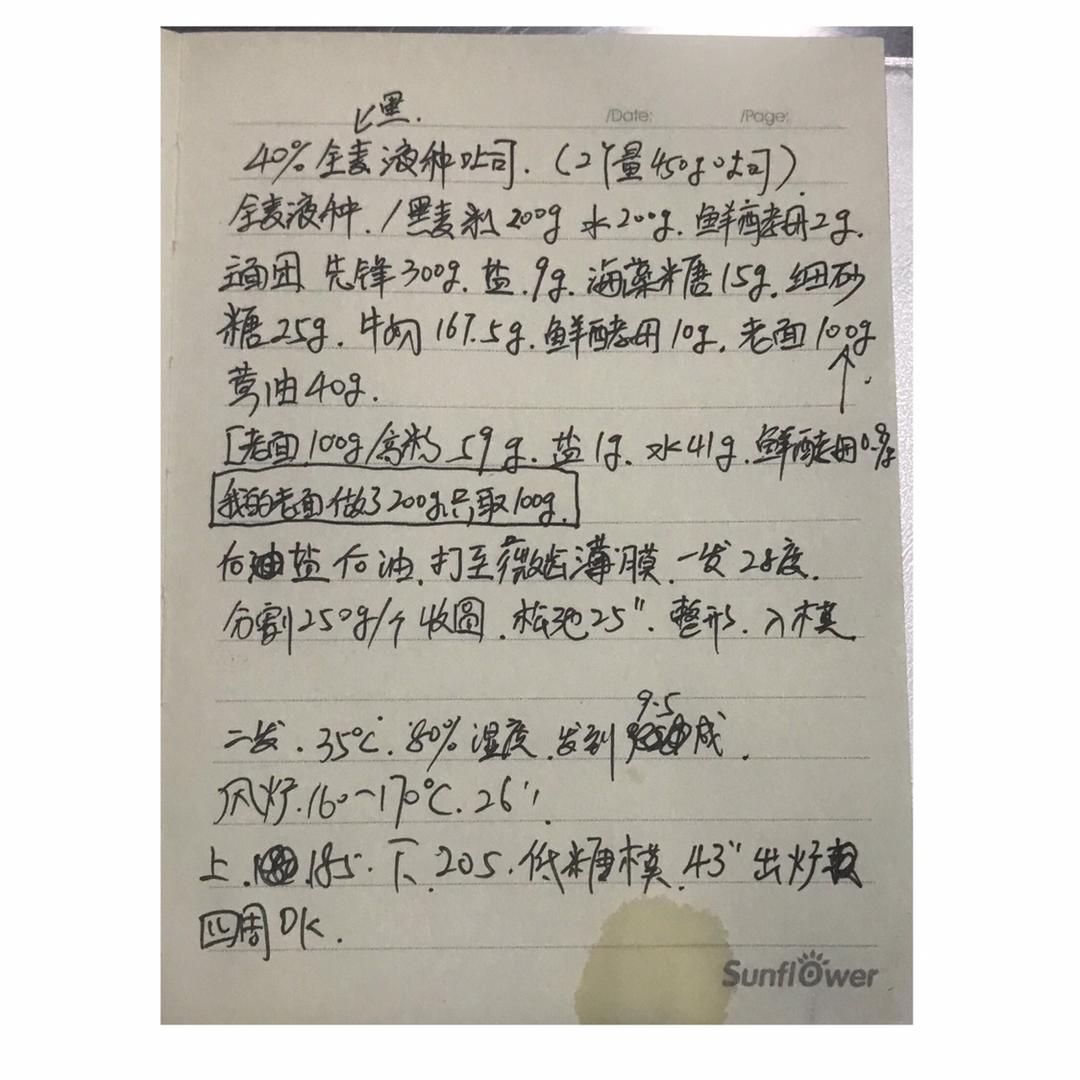 黑.
/Date: /Page:
40%全麦液种吐司.(2个量450g吐司).
全麦液种./黑麦粉200g 水200g.鲜酵母2g.
主面团 先锋300g.盐.9g.海藻糖15g.细砂
糖25g.牛奶167.5g.鲜酵母10g.老面100g
黄油40g.
[老面100g/高粉59g.盐1g.水41g.鲜酵母0.9g
我的老面做了200g,只取100g.
后盐后油.打至微齿薄膜.一发28度.
分割250g/个收圆.松弛25".整形.入模
9.5
二发.35℃.80%湿度.发到 成.
风炉.160~170℃.26".
上.185.下.205.低糖模.43"出炉
四周OK.
Sunflower